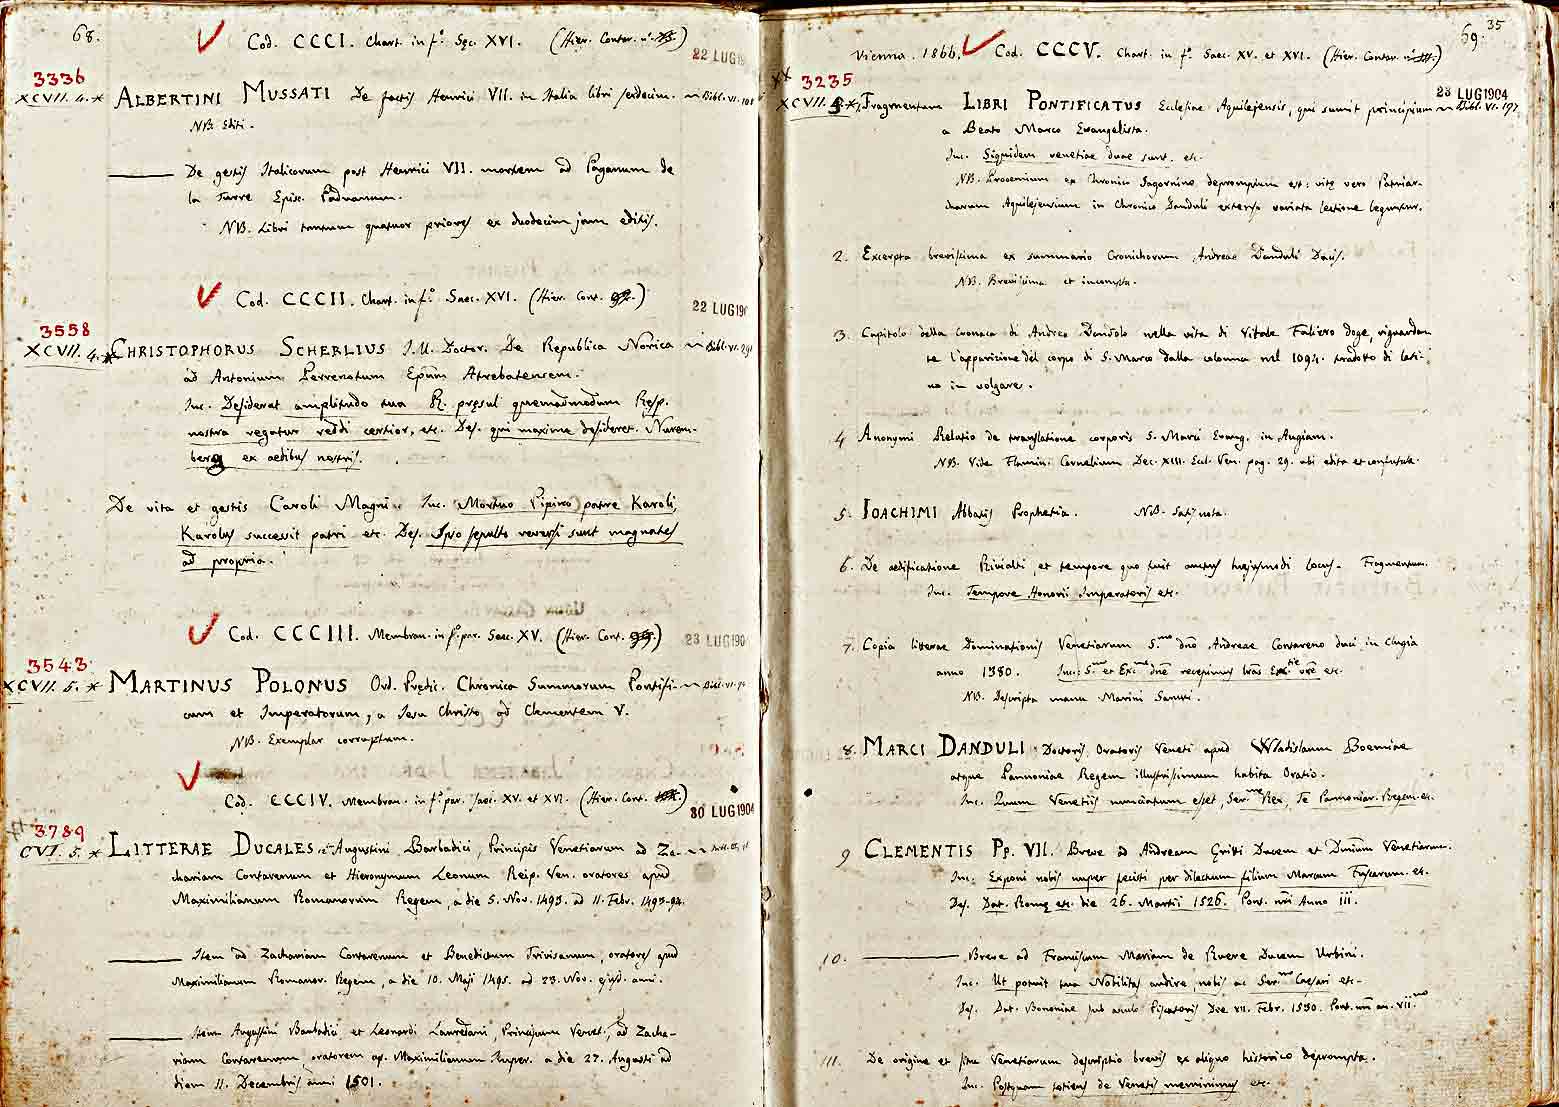 68.
Cod. CCCI. Chart. in fº. Sęc. XVI. (Hier. Contar. nº.)
22 LUG 19
3336
XCVII. 4. *
ALBERTINI MUSSATI De gestis Henrici VII. in Italia libri sexdecim. Bibl. VI.
NB. Editi.
De gestis Italicorum post Henrici VII. mortem ad Paganum de
la Turre Episc. Paduanum.
NB. Libri tantum quatuor priores ex duodecim jam editis.
Cod. CCCII. Chart. in fº. Saec. XVI. (Hier. Cont.)
22 LUG 190
3558
XCVII. 4. *
CHRISTOPHORUS SCHERLIUS I. U. Doctor. De Republica Norica Bibl. VI.
ad Antonium Perrenotum Epūm Atrebatensem.
Inc. Desiderat amplitudo tua R. pręsul quemadmodum Resp.
nostra regatur reddi certior, etc. Des. qui maxime desideret. Nurem-
berg ex aedibus nostris.
De vita et gestis Caroli Magni Inc. Mortuo Pipino patre Karoli,
Karolus successit patri etc. Des. Ipso sepulto reversi sunt magnates
ad propria.
Cod. CCCIII. Membran. in fº. par. Saec. XV. (Hier. Cont.)
23 LUG 190
3543
XCVII. 5. *
MARTINUS POLONUS Ord. Prędic. Chronica Summorum Pontifi-
cum et Imperatorum, a Iesu Christo ad Clementem V.
NB. Exemplar corruptum.
Cod. CCCIV. Membran. in fº. par. Saec. XV. et XVI. (Hier. Cont.)
30 LUG 1904
3789
CVI. 5. *
LITTERAE DUCALES Augustini Barbadici, Principis Venetiarum ad Za-
chariam Contarenum et Hieronymum Leonum Reip. Ven. oratores apud
Maximilianum Romanorum Regem, a die 5. Nov. 1493. ad 11. Febr. 1493-94.
Item ad Zachariam Contarenum et Benedictum Trivisanum, oratores apud
Maximilianum Romanor. Regem, a die 10. Maji 1495. ad 23. Nov. ejusd. anni.
Item Augustini Barbadici et Leonardi Lauredani, Principum Venet., ad Zacha-
riam Contarenum oratorem ap. Maximilianum Imper. a die 27. Augusti ad
diem 11. Decembris anni 1501.
69. 35
Vienna. 1866. Cod. CCCV. Chart. in fº. Saec. XV. et XVI. (Hier. Contar. nº.)
XX
3235
23 LUG 1904
XCVII. *
Fragmentum LIBRI PONTIFICATUS Ecclesiae Aquilejensis, qui sumit principium Bibl. VI. 197
a Beato Marco Evangelista.
Inc. Siquidem venetiae duae sunt. etc.
NB. Prooemium ex Chronico Sagornino depromptum est: vitę vero Patriar-
charum Aquilejensium in Chronico Danduli extenso variata lectione leguntur.
2. Excerpta brevissima ex summario Cronichorum Andreae Danduli Ducis.
NB. Brevissima et incompta.
3. Capitolo della cronaca di Andrea Dandolo nella vita di Vitale Faliero doge, riguardan
te l'apparizione del corpo di S. Marco dalla colonna nel 1094. tradotto di lati-
no in volgare.
4 Anonymi Relatio de translatione corporis S. Marci Evang. in Augiam.
NB. Vide Flamin. Cornelium Dec. XIII. Eccl. Ven. pag. 29. ubi edita et confutata.
5. IOACHIMI Abbatis Prophetia. NB. satis nota.
6. De aedificatione Rivialti, et tempore quo fuit auctus hujusmodi locus. Fragmentum.
Inc. Tempore Honorii Imperatoris etc.
7. Copia litterae Dominationis Venetiarum S.mo dno Andreae Contareno duci in Clugia
anno 1380. Inc: S.me et Exc.me dne recepimus lras Exc.tie vre etc.
NB. Descripta manu Marini Sanuti.
8. MARCI DANDULI Doctoris Oratoris Veneti apud Wladislaum Boemiae
atque Pannoniae Regem illustrissimum habita Oratio.
Inc. Quum Venetiis nunciatum esset, Ser.me Rex, Te Pannoniar. Regem etc.
9 CLEMENTIS Pp. VII. Breve ad Andream Gritti Ducem et Dnium Venetiarum.
Inc. Exponi nobis nuper fecisti per dilectum filium Marcum Fuscarum. etc.
Des. Dat. Romę etc. die 26. Martii 1526. Pont. nri Anno III.
10. Breve ad Franciscum Mariam de Ruere Ducem Urbini.
Inc. Ut potuit tua Nobilitas audire, nobis ac Ser.mo Caesari etc.
Des. Dat. Bononiae sub anulo Piscatoris Die VII. Febr. 1530. Pont. nri an. VII.mo
11. De origine et situ Venetiarum descriptio brevis ex aliquo historico deprompta.
Inc. Postquam totiens de Venetis meminimus etc.